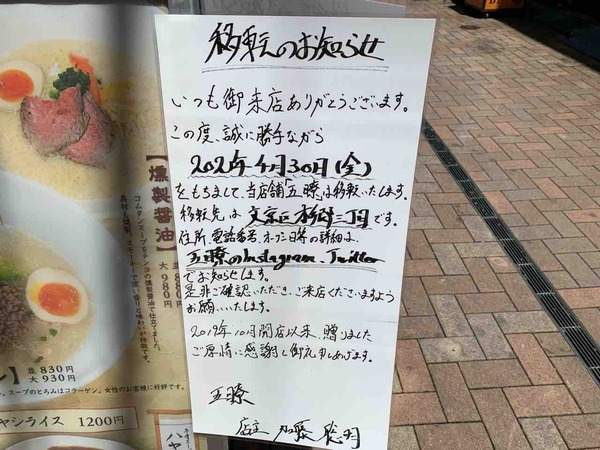 移転のお知らせ
いつも御来店ありがとうございます。
この度、誠に勝手ながら
2021年4月30日(金)
をもちまして、当店舗「五暸」は移転いたします。
移転先は 文京区 本郷三丁目です。
住所、電話番号、オープン日時の詳細は、
五暸のInstagram、Twitter
でお知らせします。
是非ご確認いただき、ご来店くださいますよう
お願いいたします。
2019年10月開店以来、賜りました
ご厚情に感謝し御礼申しあげます。
五暸
店主 加藤
【燻製醤油】
コムタンスープとチンヨの燻製醤油で仕立てました。
並 880
大 980
並 830円
大 930円
スープのとろみはコラーゲン。女性のお客様に好評です。
ヤシライス 1200円